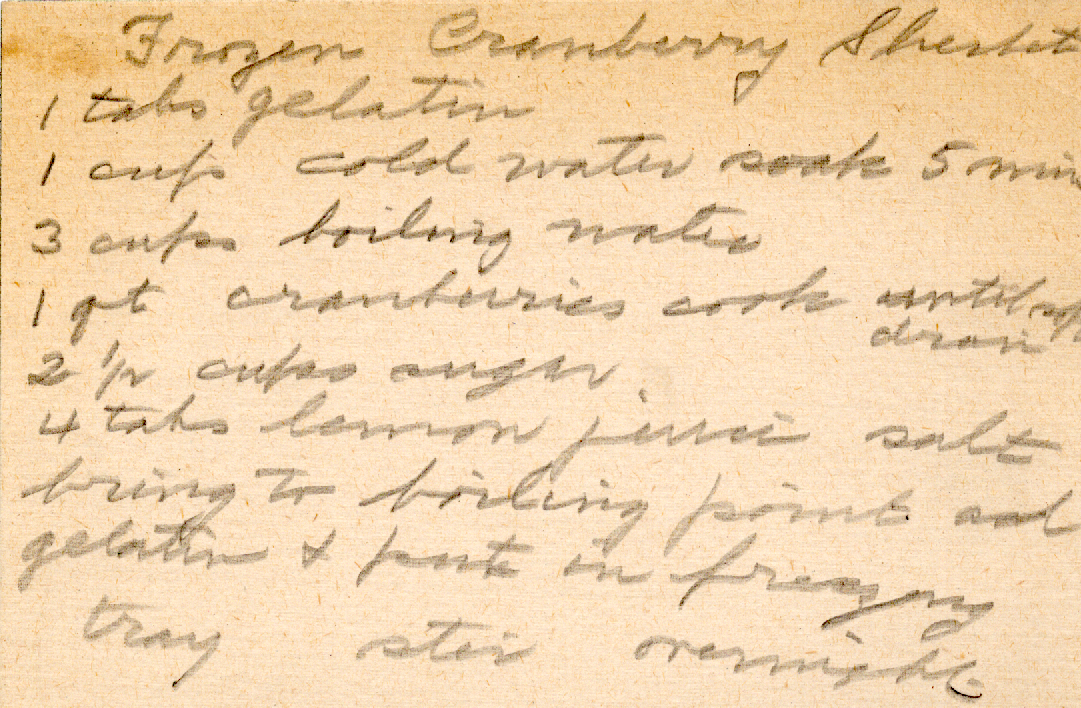 Frozen Cranberry Sherbet
1 tabs gelatin
1 cup cold water soak 5 min
3 cups boiling water
1 qt cranberries cook until soft
drain
2 1/2 cups sugar
4 tabs lemon juice salt
bring to boiling point ad
gelatin & put in freezing
tray stir overnight